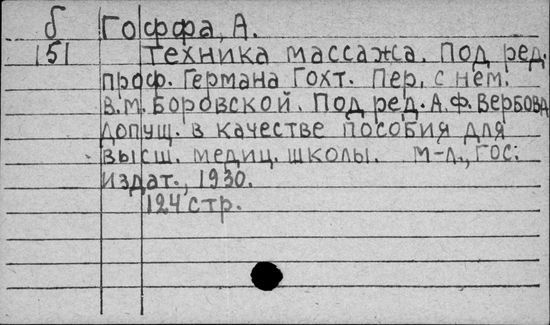 б Гоффа, А.
151 Техника массажа. Под ред.
проф. Германа Гохт. Пер. с нем.
В.М. Боровской. Под ред. А.Ф. Вербова
Допущ. в качестве пособия для
высш. медиц. школы. М-Л., Гос.
издат., 1930.
124 стр.